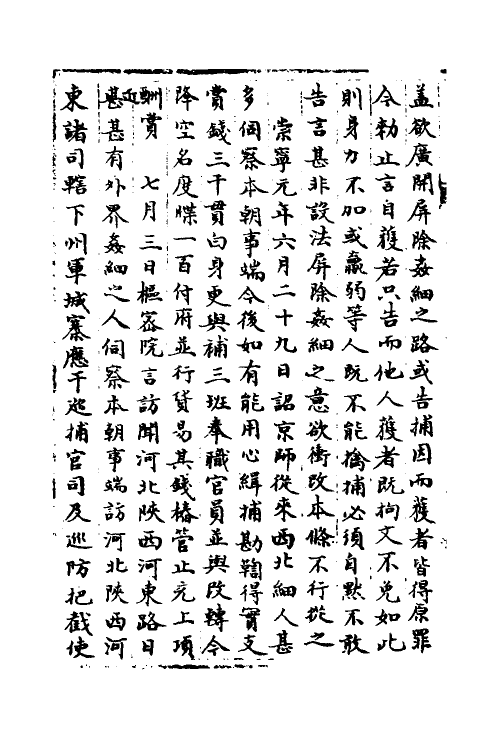 盖欲廣開屏除姦細之路或告捕因而獲者皆得原罪
令勑止言自獲若只告而他人獲者既拘文不免如此
則身力不加或羸弱等人既不能擒捕必須自默不敢
告言甚非設法屏除姦細之意欲衝改本條不行從之
崇寧元年六月二十九日詔京師從來西北細人甚
多伺察本朝事端今後如有能用心緝捕勘鞫得實支
賞錢三千貫白身更與補三班奉職官員並與改轉令
降空名度牒一百付府並行貨易其錢樁管止充上項
酬賞 七月三日樞宻院言訪聞河北陝西河東路日
近甚有外界姦細之人伺察本朝事端訪河北陝西河
東諸司轄下州軍城寨應干廵捕官司及巡防把截使